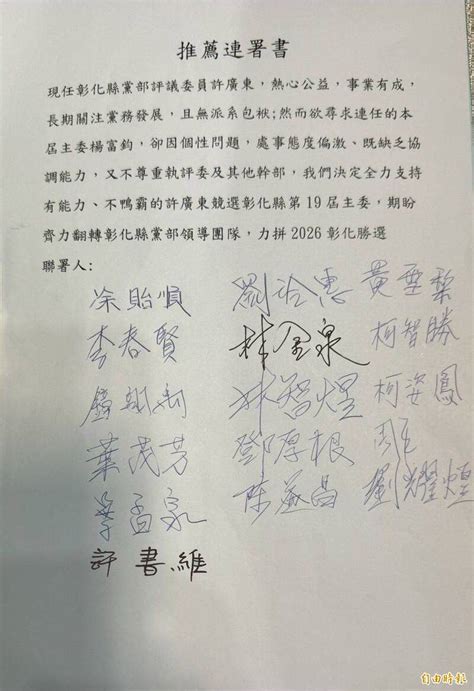 推薦連署書
現任彰化縣黨部評議委員許廣東，熱心公益，事業有成，
長期關注黨務發展，且無派系包袱;然而欲尋求連任的本
屆主委楊富鈞，卻因個性問題，處事態度偏激、既缺乏協
調能力，又不尊重執評委及其他幹部，我們決定全力支持
有能力、不鴨霸的許廣東競選彰化縣第19屆主委，期盼
齊力翻轉彰化縣黨部領導團隊，力拼2026彰化勝選
聯署人:
涂貽順 劉 惠 黃 梨
李春賢 林金泉 柯智勝
林智煌 柯姿鳳
葉茂芳 鄧厚根
葉孟家 陳 昌 劉耀煌
許書維
自由時報